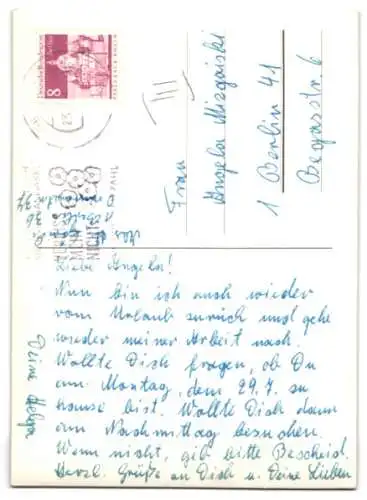 Deutsche Bundespost
Berlin
8
III
Frau
Angela Mizgaiski
1 Berlin 41
Begasstr. 6
1 Berlin 36
NICHT
Liebe Angela!
Nun bin ich auch wieder
vom Urlaub zurück und gehe
wieder meiner Arbeit nach.
Wollte Dich fragen, ob Du
am Montag, dem 29.7. zu
hause bist. Wollte Dich dann
am Nachmittag besuchen.
Wenn nicht, gib bitte Bescheid.
Herzl. Grüße an Dich u. Deine Lieben
Deine Helga